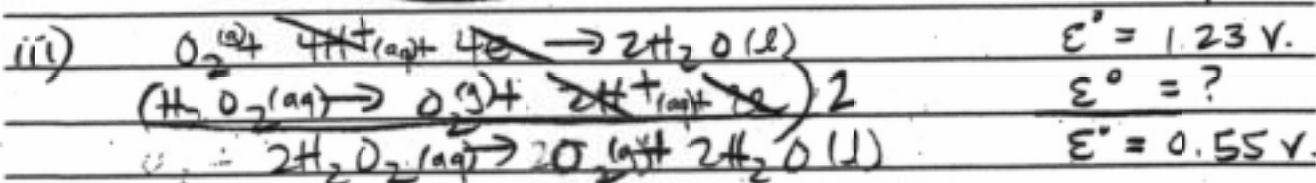 iii) O₂(g)+ 4H⁺(aq)+ 4e → 2H₂O(l) ε° = 1.23 V.
(H₂O₂(aq) → O₂(g)+ 2H⁺(aq)+ 2e)2 ε° = ?
2H₂O₂(aq) → O₂(g)+ 2H₂O(l) ε° = 0.55 V.